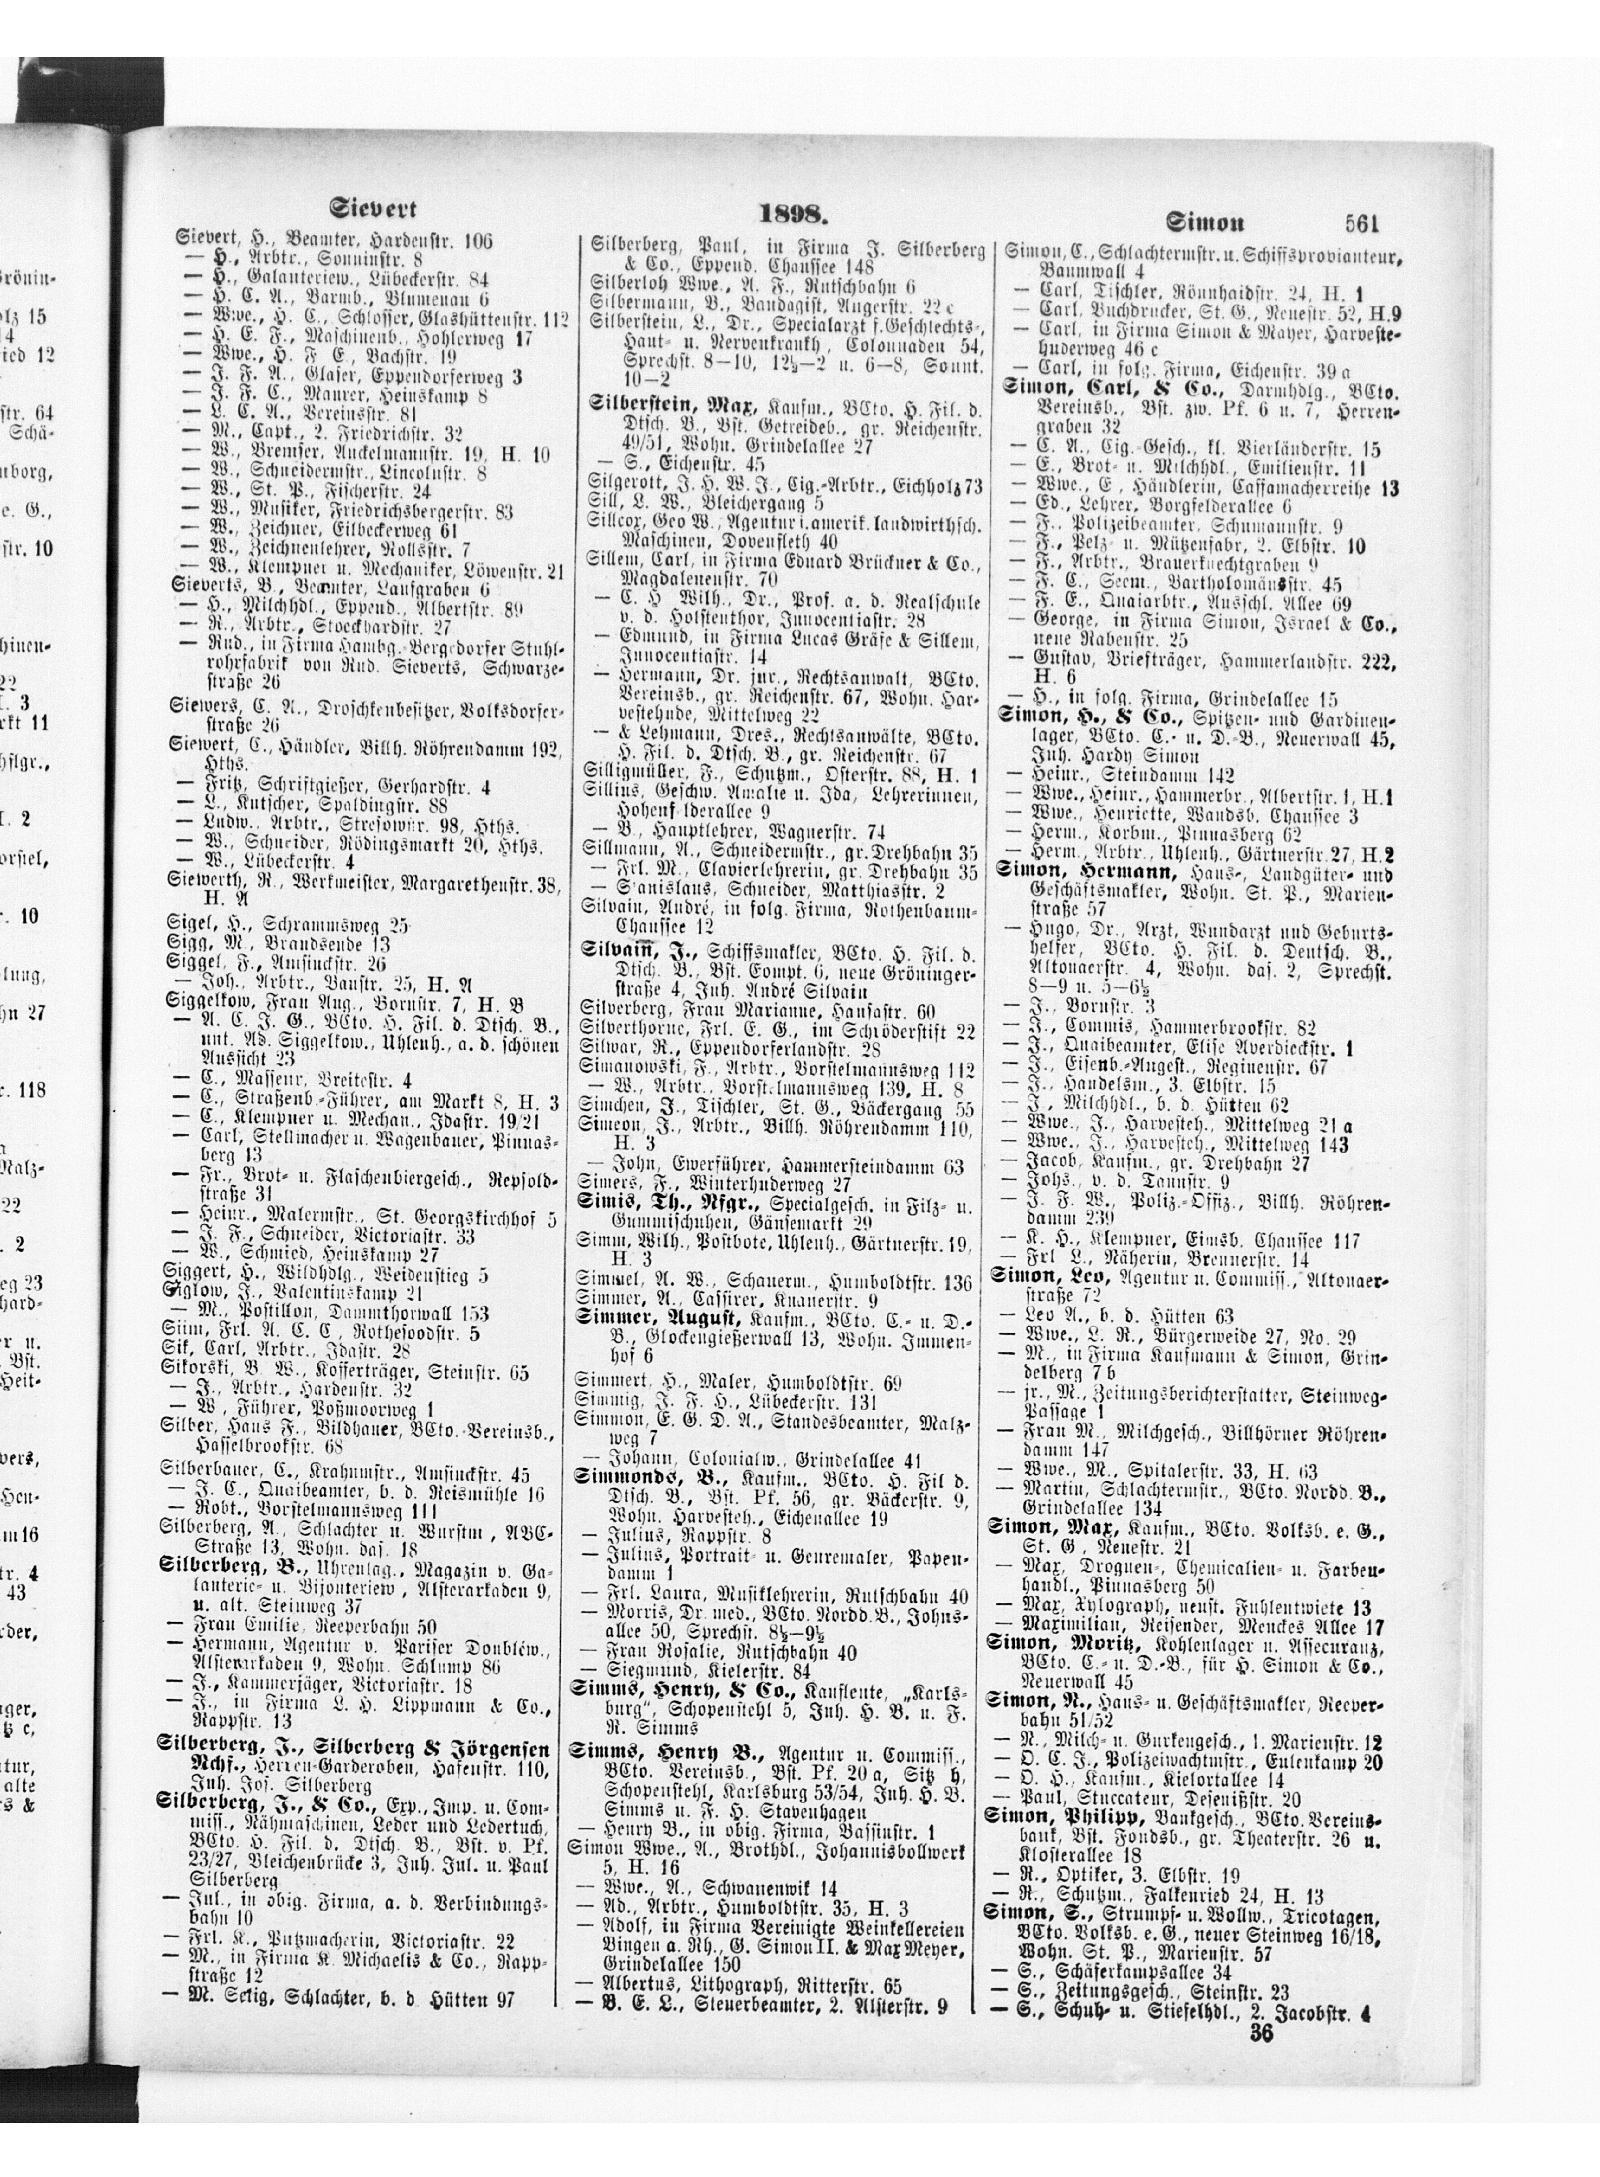 Sievert
1898.
Simon 561
Sievert, H., Beamter, Hardenstr. 106
— H., Arbtr., Sonninstr. 8
— H., Galanteriew., Lübeckerstr. 84
— H. C. A., Barmb., Blumenau 6
— Wwe., H. C., Schlosser, Glashüttenstr. 112
— H. E. F., Maschinenb., Hohlerweg 17
— Wwe., H. F E., Bachstr. 19
— J. F. A., Glaser, Eppendorferweg 3
— J. F. C., Maurer, Heinskamp 8
— L. C. A., Vereinsstr. 81
— M., Capt., 2. Friedrichstr. 32
— W., Bremser, Anckelmannstr. 19, H. 10
— W., Schneidermstr., Lincolnstr. 8
— W., St. P., Fischerstr. 24
— W., Musiker, Friedrichsbergerstr. 83
— W., Zeichner, Eilbeckerweg 61
— W., Zeichnenlehrer, Rollsstr. 7
— W., Klempner u. Mechaniker, Löwenstr. 21
Sieverts, B., Beamter, Laufgraben 6
— H., Milchhdl., Eppend., Albertstr. 89
— R., Arbtr., Stoeckhardstr. 27
— Rud., in Firma Hambg.-Bergedorfer Stuhl-
rohrfabrik von Rud. Sieverts, Schwarze-
straße 26
Siewers, C. A., Droschkenbesitzer, Volksdorfer-
straße 26
Siewert, C., Händler, Billh. Röhrendamm 192,
Hths.
— Fritz, Schriftgießer, Gerhardstr. 4
— L., Kutscher, Spaldingstr. 88
— Ludw., Arbtr., Stresowstr. 98, Hths.
— W., Schneider, Rödingsmarkt 20, Hths.
— W., Lübeckerstr. 4
Siewerth, R., Werkmeister, Margarethenstr. 38,
H. A
Sigel, H., Schrammsweg 25
Sigg, M., Brandsende 13
Siggel, F., Amsinckstr. 26
— Joh., Arbtr., Banstr. 25, H. A
Siggelkow, Frau Aug., Bornstr. 7, H. B
— A. C. J. G., BCto. H. Fil. d. Dtsch. B.,
unt. Ad. Siggelkow., Uhlenh., a. d. schönen
Aussicht 23
— C., Masseur, Breitestr. 4
— C., Straßenb.-Führer, am Markt 8, H. 3
— C., Klempner u. Mechan., Idastr. 19/21
— Carl, Stellmacher u. Wagenbauer, Pinnas-
berg 13
— Fr., Brot- u. Flaschenbiergesch., Repsold-
straße 31
— Heinr., Malermstr., St. Georgskirchhof 5
— J. F., Schneider, Victoriastr. 33
— W., Schmied, Heinskamp 27
Siggert, H., Wildhdlg., Weidenstieg 5
Siglow, J., Valentinskamp 21
— M., Postillon, Dammthorwall 153
Siim, Frl. A. C. C, Rothesoodstr. 5
Sik, Carl, Arbtr., Idastr. 28
Sikorski, B. W., Kofferträger, Steinstr. 65
— J., Arbtr., Hardenstr. 32
— W, Führer, Poßmoorweg 1
Silber, Hans F., Bildhauer, BCto. Vereinsb.,
Hasselbrookstr. 68
Silberbauer, C., Krahnmstr., Amsinckstr. 45
— J. C., Quaibeamter, b. d. Reismühle 16
— Robt., Borstelmannsweg 111
Silberberg, A., Schlachter u. Wurstm., ABC-
Straße 13, Wohn. das. 18
Silberberg, B., Uhrenlag., Magazin v. Ga-
lanterie- u. Bijouteriew., Alsterarkaden 9,
u. alt. Steinweg 37
— Frau Emilie, Reeperbahn 50
— Hermann, Agentur v. Pariser Doubléw.,
Alsterarkaden 9, Wohn. Schlump 86
— J., Kammerjäger, Victoriastr. 18
— J., in Firma L. H. Lippmann & Co.,
Rappstr. 13
Silberberg, J., Silberberg & Jörgensen
Nchf., Herren-Garderoben, Hafenstr. 110,
Inh. Jos. Silberberg
Silberberg, J., & Co., Exp., Imp. u. Com-
miss., Nähmaschinen, Leder und Ledertuch,
BCto. H. Fil. d. Dtsch. B., Bst. v. Pf.
23/27, Bleichenbrücke 3, Inh. Jul. u. Paul
Silberberg
— Jul., in obig. Firma, a. d. Verbindungs-
bahn 10
— Frl. K., Putzmacherin, Victoriastr. 22
— M., in Firma K. Michaelis & Co., Rapp-
straße 12
— M. Selig, Schlachter, b. d. Hütten 97
Silberberg, Paul, in Firma J. Silberberg
& Co., Eppend. Chaussee 148
Silberloh Wwe., A. F., Rutschbahn 6
Silbermann, B., Bandagist, Angerstr. 22 c
Silberstein, L., Dr., Specialarzt f. Geschlechts-,
Haut- u. Nervenkrankh., Colonnaden 54,
Sprechst. 8—10, 12½—2 u. 6—8, Sonnt.
10—2
Silberstein, Max, Kaufm., BCto. H. Fil. d.
Dtsch. B., Bst. Getreideb., gr. Reichenstr.
49/51, Wohn. Grindelallee 27
— S., Eichenstr. 45
Silgerott, J. H. W. J., Cig.-Arbtr., Eichholz 73
Sill, L. W., Bleichergang 5
Sillcox, Geo W., Agentur i. amerik. landwirthsch.
Maschinen, Dovenfleth 40
Sillem, Carl, in Firma Eduard Brückner & Co.,
Magdalenenstr. 70
— C. H Wilh., Dr., Prof. a. d. Realschule
v. d. Holstenthor, Innocentiastr. 28
— Edmund, in Firma Lucas Gräfe & Sillem,
Innocentiastr. 14
— Hermann, Dr. jur., Rechtsanwalt, BCto.
Vereinsb., gr. Reichenstr. 67, Wohn. Har-
vestehude, Mittelweg 22
— & Lehmann, Dres., Rechtsanwälte, BCto.
H. Fil. d. Dtsch. B., gr. Reichenstr. 67
Silligmüller, F., Schutzm., Osterstr. 88, H. 1
Sillius, Geschw. Amalie u. Ida, Lehrerinnen,
Hohenfelderallee 9
— B., Hauptlehrer, Wagnerstr. 74
Sillmann, A., Schneidermstr., gr. Drehbahn 35
— Frl. M., Clavierlehrerin, gr. Drehbahn 35
— Stanislaus, Schneider, Matthiasstr. 2
Silvain, André, in folg. Firma, Rothenbaum-
Chaussee 12
Silvain, J., Schiffsmakler, BCto. H. Fil. d.
Dtsch. B., Bst. Compt. 6, neue Gröninger-
straße 4, Inh. André Silvain
Silverberg, Frau Marianne, Hansastr. 60
Silverthorne, Frl. E. G., im Schröderstift 22
Silwar, R., Eppendorferlandstr. 28
Simanowski, F., Arbtr., Borstelmannsweg 112
— W., Arbtr., Borstelmannsweg 139, H. 8
Simchen, J., Tischler, St. G., Bäckergang 55
Simeon, J., Arbtr., Billh. Röhrendamm 110,
H. 3
— John, Ewerführer, Hammersteindamm 63
Simers, F., Winterhuderweg 27
Simis, Th., Nfgr., Specialgesch. in Filz- u.
Gummischuhen, Gänsemarkt 29
Simm, Wilh., Postbote, Uhlenh., Gärtnerstr. 19,
H. 3
Simmel, A. W., Schauerm., Humboldtstr. 136
Simmer, A., Cassirer, Knauerstr. 9
Simmer, August, Kaufm., BCto. C.- u. D.-
B., Glockengießerwall 13, Wohn. Immen-
hof 6
Simmert, H., Maler, Humboldtstr. 69
Simmig, J. F. H., Lübeckerstr. 131
Simmon, E. G. D. A., Standesbeamter, Malz-
weg 7
— Johann, Colonialw., Grindelallee 41
Simmonds, B., Kaufm., BCto. H. Fil d.
Dtsch. B., Bst. Pf. 56, gr. Bäckerstr. 9,
Wohn. Harvesteh., Eichenallee 19
— Julius, Rappstr. 8
— Julius, Portrait- u. Genremaler, Papen-
damm 1
— Frl. Laura, Musiklehrerin, Rutschbahn 40
— Morris, Dr. med., BCto. Nordd. B., Johns-
allee 50, Sprechst. 8½—9½
— Frau Rosalie, Rutschbahn 40
— Siegmund, Kielerstr. 84
Simms, Henry, & Co., Kaufleute, „Karls-
burg“, Schopenstehl 5, Inh. H. B. u. F.
R. Simms
Simms, Henry B., Agentur u. Commiss.,
BCto. Vereinsb., Bst. Pf. 20 a, Sitz h,
Schopenstehl, Karlsburg 53/54, Inh. H. B.
Simms u. F. H. Stavenhagen
— Henry B., in obig. Firma, Bassinstr. 1
Simon Wwe., A., Brothdl., Johannisbollwerk
5, H. 16
— Wwe., A., Schwanenwik 14
— Ad., Arbtr., Humboldtstr. 35, H. 3
— Adolf, in Firma Vereinigte Weinkellereien
Bingen a. Rh., G. Simon II. & Max Meyer,
Grindelallee 150
— Albertus, Lithograph, Ritterstr. 65
— B. E. L., Steuerbeamter, 2. Alsterstr. 9
Simon, C., Schlachtermstr. u. Schiffsprovianteur,
Baumwall 4
— Carl, Tischler, Rönnhaidstr. 24, H. 1
— Carl, Buchdrucker, St. G., Neuestr. 52, H. 9
— Carl, in Firma Simon & Mayer, Harveste-
huderweg 46 c
— Carl, in folg. Firma, Eichenstr. 39 a
Simon, Carl, & Co., Darmhdlg., BCto.
Vereinsb., Bst. zw. Pf. 6 u. 7, Herren-
graben 32
— C. A., Cig.-Gesch., kl. Vierländerstr. 15
— E., Brot- u. Milchhdl., Emilienstr. 11
— Wwe., E., Händlerin, Caffamacherreihe 13
— Ed., Lehrer, Borgfelderallee 6
— F., Polizeibeamter, Schumannstr. 9
— F., Pelz- u. Mützenfabr., 2. Elbstr. 10
— F., Arbtr., Brauerknechtgraben 9
— F. C., Seem., Bartholomäusstr. 45
— F. E., Quaiarbtr., Ausschl. Allee 69
— George, in Firma Simon, Israel & Co.,
neue Rabenstr. 25
— Gustav, Briefträger, Hammerlandstr. 222,
H. 6
— H., in folg. Firma, Grindelallee 15
Simon, H., & Co., Spitzen- und Gardinen-
lager, BCto. C.- u. D.-B., Neuerwall 45,
Inh. Hardy Simon
— Heinr., Steindamm 142
— Wwe., Heinr., Hammerbr., Albertstr. 1, H. 1
— Wwe., Henriette, Wandsb. Chaussee 3
— Herm., Korbm., Pinnasberg 62
— Herm., Arbtr., Uhlenh., Gärtnerstr. 27, H. 2
Simon, Hermann, Haus-, Landgüter- und
Geschäftsmakler, Wohn. St. P., Marien-
straße 57
— Hugo, Dr., Arzt, Wundarzt und Geburts-
helfer, BCto. H. Fil. d. Deutsch. B.,
Altonaerstr. 4, Wohn. das. 2, Sprechst.
8—9 u. 5—6½
— J., Bornstr. 3
— J., Commis, Hammerbrookstr. 82
— J., Quaibeamter, Elise Averdieckstr. 1
— J., Eisenb.-Angest., Reginenstr. 67
— J., Handelsm., 3. Elbstr. 15
— J., Milchhdl., b. d. Hütten 62
— Wwe., J., Harvesteh., Mittelweg 21 a
— Wwe., J., Harvesteh., Mittelweg 143
— Jacob, Kaufm., gr. Drehbahn 27
— Johs., v. d. Tannstr. 9
— J. F. W., Poliz.-Offiz., Billh. Röhren-
damm 239
— K. H., Klempner, Eimsb. Chaussee 117
— Frl L., Näherin, Brennerstr. 14
Simon, Leo, Agentur u. Commiss., Altonaer-
straße 72
— Leo A., b. d. Hütten 63
— Wwe., L. R., Bürgerweide 27, No. 29
— M., in Firma Kaufmann & Simon, Grin-
delberg 7 b
— jr., M., Zeitungsberichterstatter, Steinweg-
Passage 1
— Frau M., Milchgesch., Billhörner Röhren-
damm 147
— Wwe., M., Spitalerstr. 33, H. 63
— Martin, Schlachtermstr., BCto. Nordd. B.,
Grindelallee 134
Simon, Max, Kaufm., BCto. Volksb. e. G.,
St. G., Neuestr. 21
— Max, Droguen-, Chemicalien- u. Farben-
handl., Pinnasberg 50
— Max, Xylograph, neust. Fuhlentwiete 13
— Maximilian, Reisender, Menckes Allee 17
Simon, Moritz, Kohlenlager u. Assecuranz,
BCto. C.- u. D.-B., für H. Simon & Co.,
Neuerwall 45
Simon, N., Haus- u. Geschäftsmakler, Reeper-
bahn 51/52
— N., Milch- u. Gurkengesch., l. Marienstr. 12
— O. C. J., Polizeiwachtmstr., Eulenkamp 20
— O. H., Kaufm., Kielortallee 14
— Paul, Stuccateur, Desenißstr. 20
Simon, Philipp, Bankgesch., BCto. Vereins-
bank, Bst. Fondsb., gr. Theaterstr. 26 u.
Klosterallee 18
— R., Optiker, 3. Elbstr. 19
— R., Schutzm., Falkenried 24, H. 13
Simon, S., Strumpf- u. Wollw., Tricotagen,
BCto. Volksb. e. G., neuer Steinweg 16/18,
Wohn. St. P., Marienstr. 57
— S., Schäferkampsallee 34
— S., Zeitungsgesch., Steinstr. 23
— S., Schuh- u. Stiefelhdl., 2. Jacobstr. 4
36